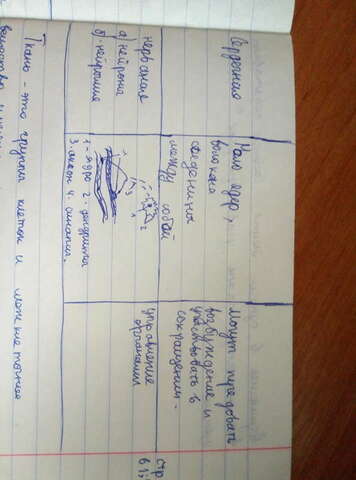 Сердечная
Мало ядер,
волокна
соединены
между собой
Могут передовать
возбуждение и
участвовать в
сокращении.
нервная
а) нейроны
б) нейроглия
1-ядро 2-дендриты
3. аксон 4. синапсы.
Управление
организм
стр
61
Ткань - это группа клеток и межклеточное
вещество